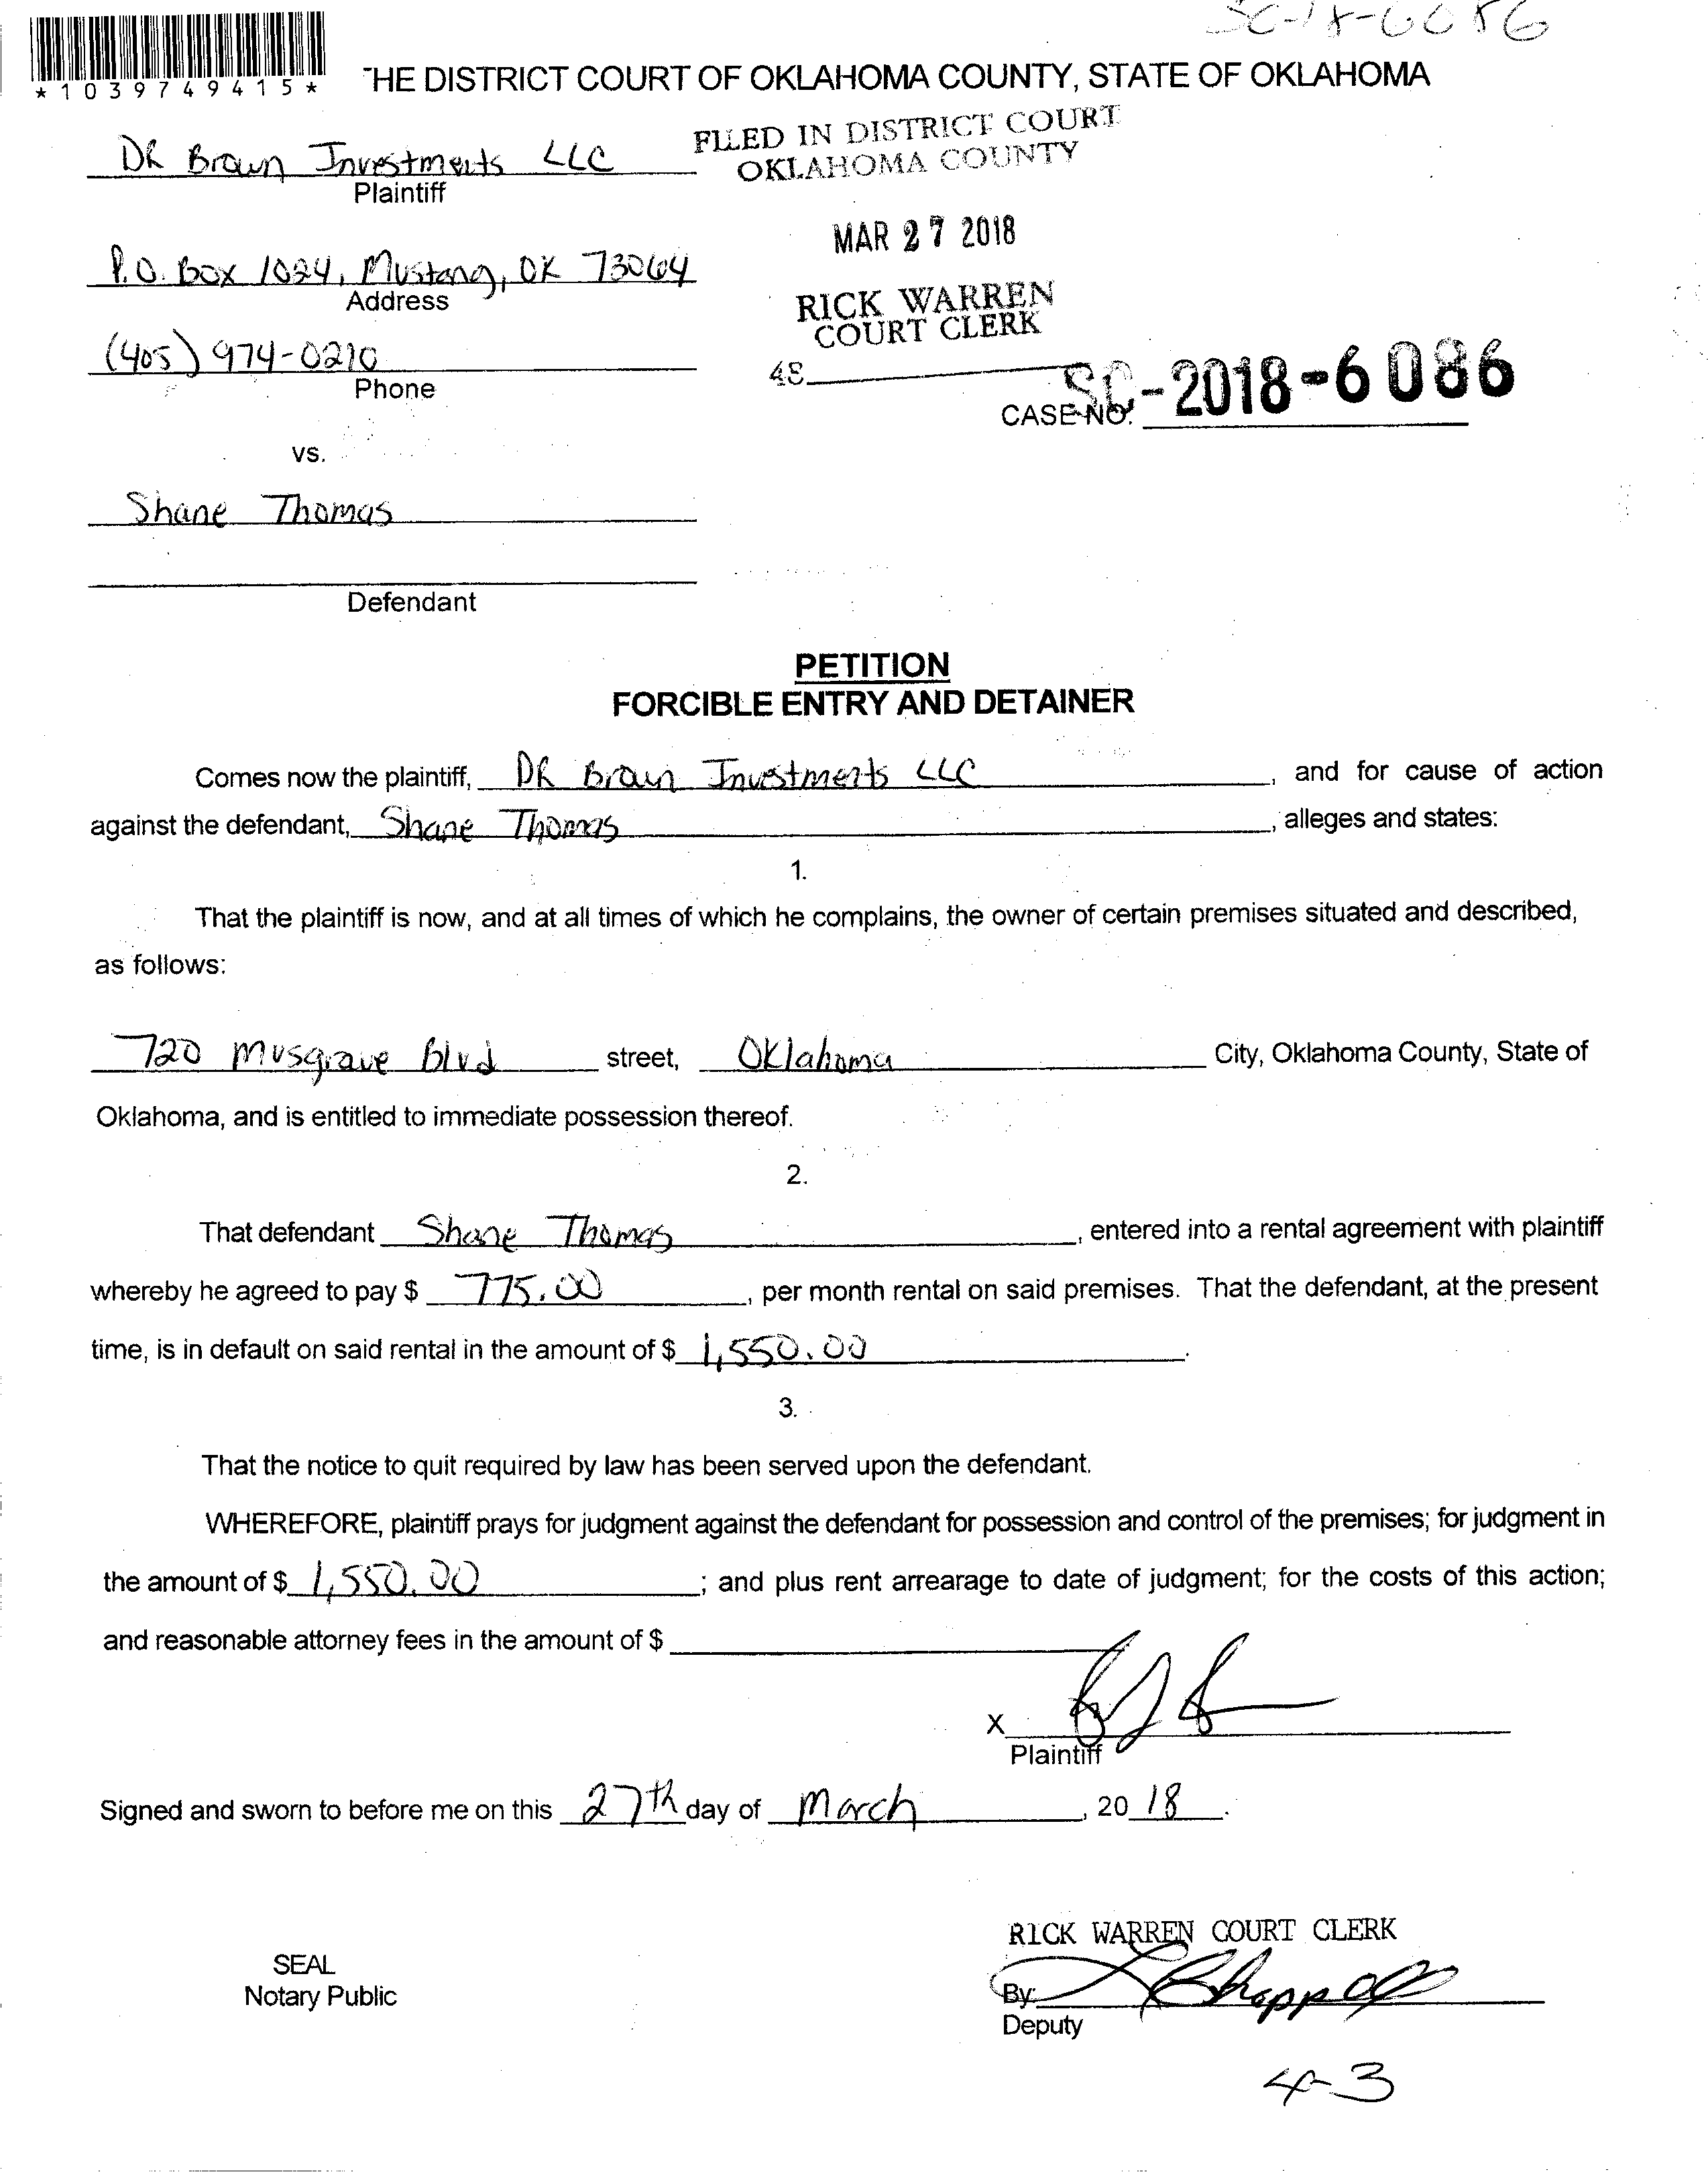 SC-18-6086
*1039749415*
THE DISTRICT COURT OF OKLAHOMA COUNTY, STATE OF OKLAHOMA
DR Brown Investments LLC
Plaintiff
FILED IN DISTRICT COURT
OKLAHOMA COUNTY
MAR 27 2018
P.O. Box 1024, Mustang, OK 73064
Address
RICK WARREN
COURT CLERK
(405) 974-0210
Phone
48
CASE NO. SC-2018-6086
vs.
Shane Thomas
Defendant
PETITION
FORCIBLE ENTRY AND DETAINER
Comes now the plaintiff, DR Brown Investments LLC, and for cause of action
against the defendant, Shane Thomas, alleges and states:
1.
That the plaintiff is now, and at all times of which he complains, the owner of certain premises situated and described,
as follows:
720 Musgrave Blvd street, Oklahoma City, Oklahoma County, State of
Oklahoma, and is entitled to immediate possession thereof.
2.
That defendant Shane Thomas, entered into a rental agreement with plaintiff
whereby he agreed to pay $ 775.00, per month rental on said premises. That the defendant, at the present
time, is in default on said rental in the amount of $ 1,550.00.
3.
That the notice to quit required by law has been served upon the defendant.
WHEREFORE, plaintiff prays for judgment against the defendant for possession and control of the premises; for judgment in
the amount of $ 1,550.00; and plus rent arrearage to date of judgment; for the costs of this action;
and reasonable attorney fees in the amount of $
X
Plaintiff
Signed and sworn to before me on this 27th day of March, 20 18.
RICK WARREN COURT CLERK
SEAL
Notary Public
By:
Deputy
4-3